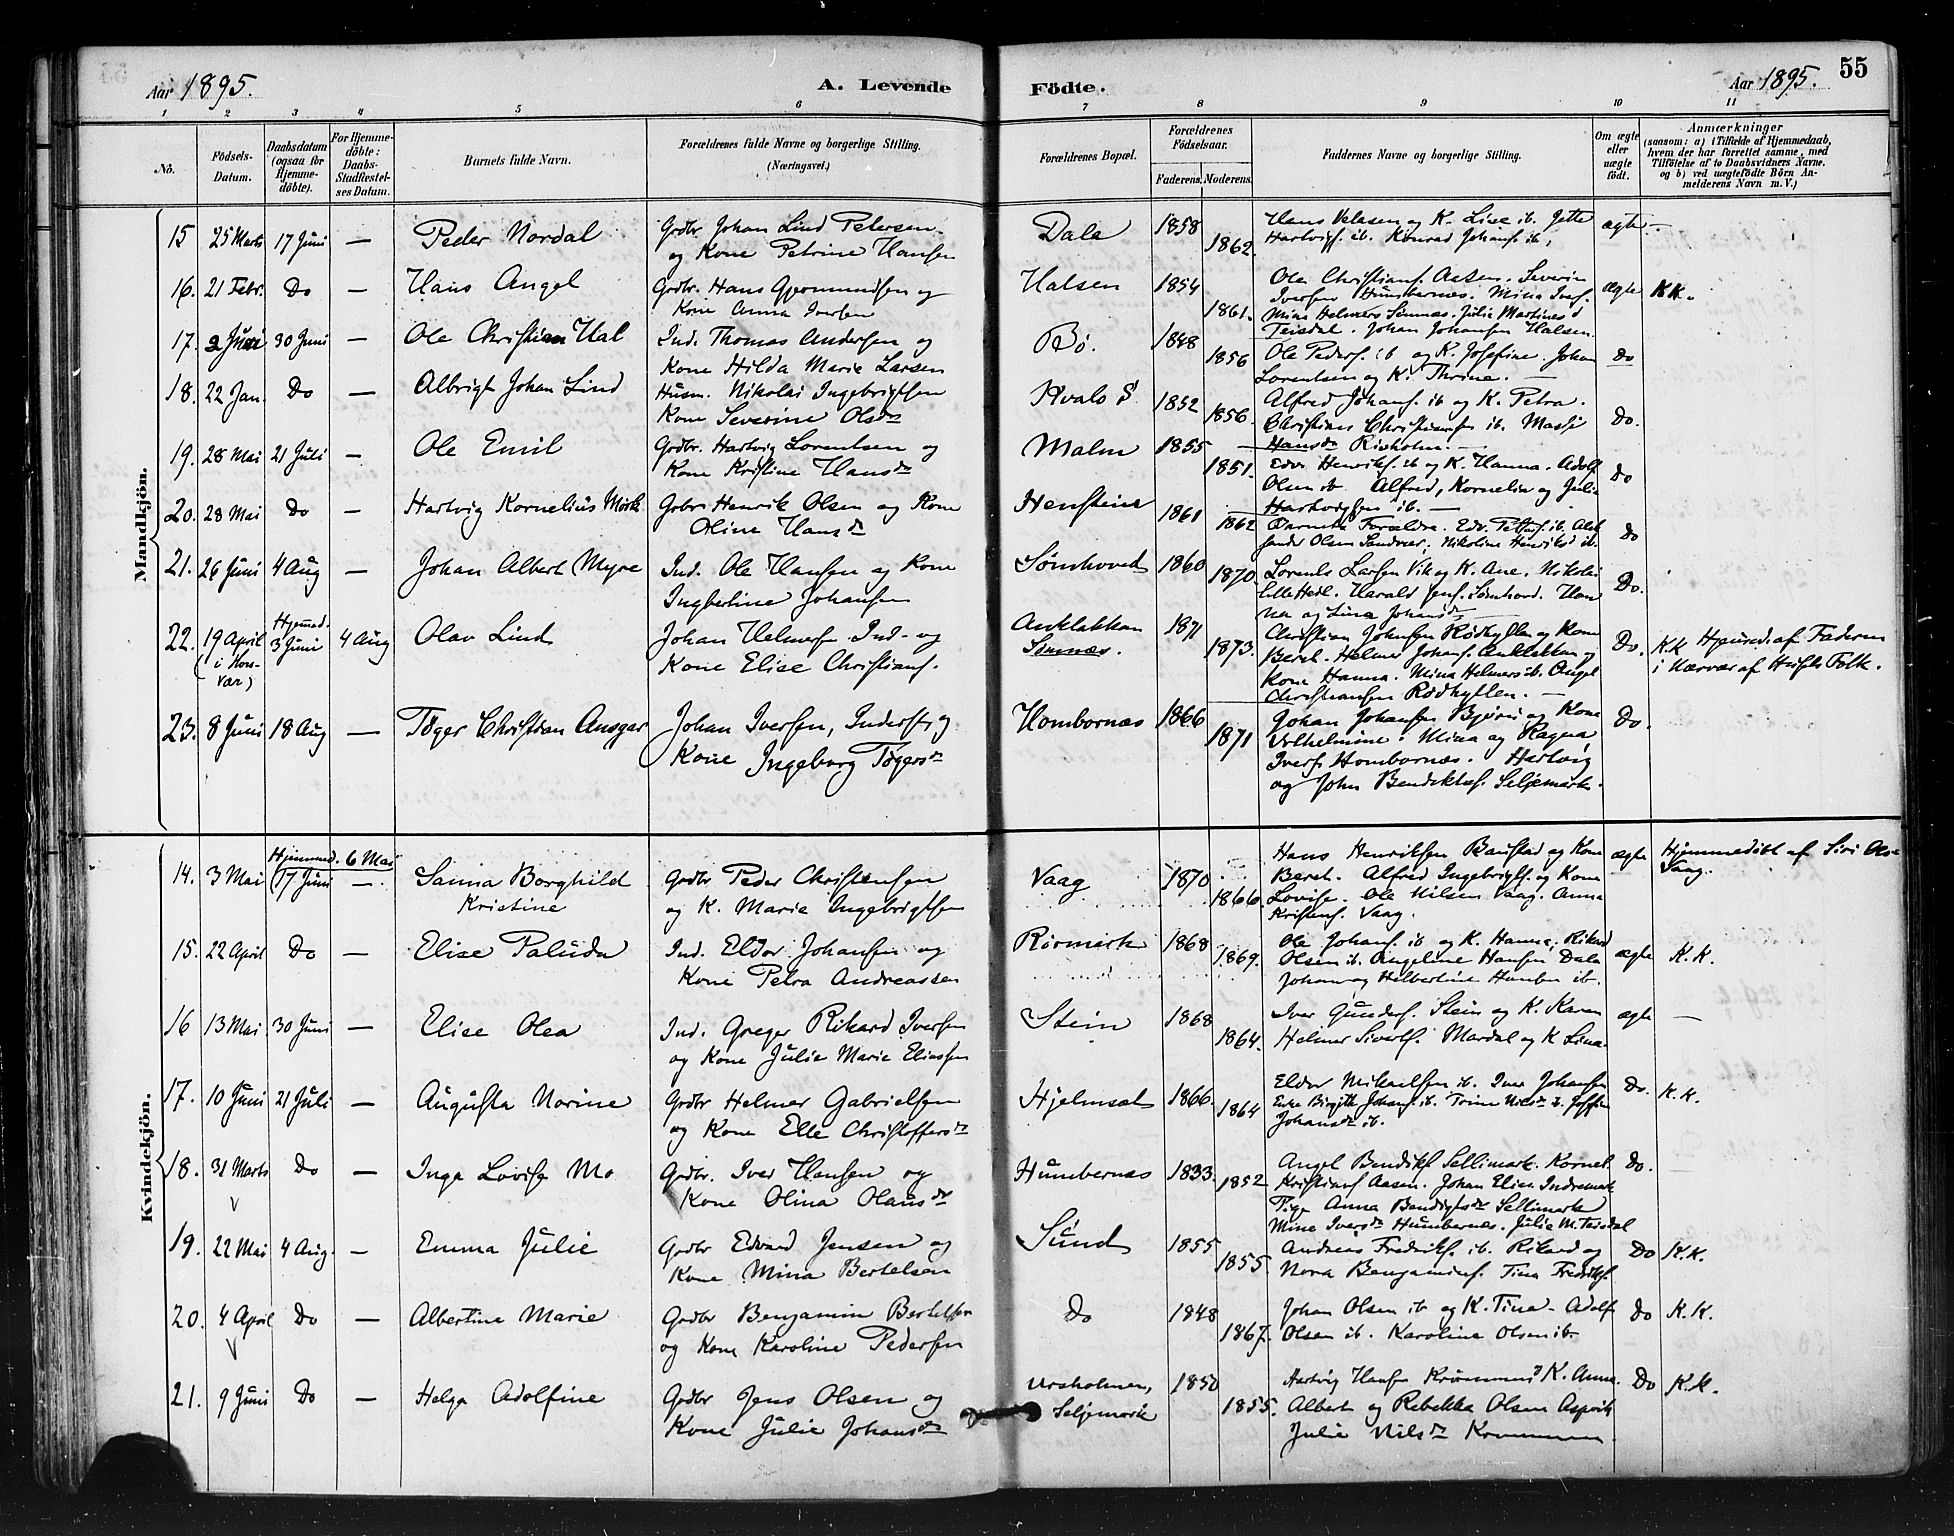 Aar 1895.
A. Levende
Födte.
Aar 1895.
55
1 2 3 4 5 6 7 8 9 10 11
No.
Födsels-
Datum.
Daabsdatum
(ogsaa for
Hjemme-
döbte).
For Hjemme-
döbte:
Daabs-
Stadfæstel-
ses Datum.
Barnets fulde Navn.
Forældrenes fulde Navne og borgerlige Stilling.
(Næringsvei.)
Forældrenes Bopæl.
Forældrenes
Födselsaar.
Faderens. Moderens.
Faddernes Navne og borgerlige Stilling.
Om ægte
eller
uægte
födt.
Anmærkninger
(saasom: a) i Tilfælde af Hjemmedaab,
hvem der har forrettet samme, med
Tilföielse af to Daabsvidners Navne.
og b) ved uægtefödte Börn An-
melderens Navn m. V.)
Mandkjön.
15 25 Marts 17 Juni — Peder Nordal
Grdbr Johan Lind Petersen
og Kone Petrine Hansen
Dala 1858 1862.
Hans Velasen og K. Lise ib. Jette
Hartvigs. ib. Konrad Johans. ib.
ægte —
16. 21 Febr. Do — Hans Angel
Grdbr. Hans Gjermundsen og
Kone Anna Iversen
Halsen 1854 1861.
Ole Christians. Aasen. Severin
Iversen Humbernæs. Mina Ivers.
Mina Helmers Sømnæs. Julie Martines d
Teisdal. Johan Johansen Halsen.
ægte KK.
17. 2 Juni 30 Juni — Ole Christian Hal
Ind. Thomas Andersen og
Kone Hilda Marie Larsen
Bø. 1848 1856
Ole Peders. ib og K. Josefine. Johan
Lorentsen og K. Thrine. —
Do
18. 22 Jan. Do — Albrigt Johan Lind
Husm. Nikolai Ingebrigtsen
Kone Severine Olsdr
Kvalø 1852 1856.
Alfred Johans. ib og K. Petra.
Christian Christiansen ib. Massi
Hansdr Risholm. —
Do.
19. 28 Mai 21 Juli — Ole Emil
Grdbr. Hartvig Lorentsen og
Kone Kristine Hansdr
Malm 1855 1851.
Edv. Henriks. ib og K. Hanna. Adolf
Olsen ib. Alfred, Kornelia og Julie
Hartvigsen ib. —
Do
20. 28 Mai Do — Hartvig Kornelius Mørk
Gdbr Henrik Olsen og Kone
Oline Hansdr
Henstein 1861 1862
Barnets Forældre. Edv. Petters. ib. Alek
sander Olsen Sandvær, Nikoline Henriksd ib.
Do
21. 26 Juni 4 Aug — Johan Albert Myre
Ind. Ole Hansen og Kone
Ingbertine Johansen
Sømhoved 1860 1870.
Lorents Larsen Vik og K. Ane. Nikolai
Harald Jens. Sømhoved. Han
na og Lina Johansd —
Do.
22. 19 April
(i Hor-
vær)
Hjemmed.
3 Juni 4 Aug Olav Lind
Johan Helmersen Ind. og
Kone Elise Christians.
Anklakkan
Sømnæs. 1871 1873.
Christian Johansen Rødhyllen og Kone
Beret. Helmer Johans. Anklakkan og
Kone Hanna. Mina Helmers ib. Angel
Christiansen Rødhyllen. —
Do. KK Hjemmed. af Faderen
i Nærvær af Husets Folk.
23. 8 Juni 18 Aug — Tøger Christian Ansgar
Johan Iversen, Inderst og
Kone Ingeborg Tøgersdr
Hombornæs 1866 1871
Johan Johansen Bjørn og Kone
Vilhelmine. Mina og Ragna
Ivers. Hombornæs. Hartvig
og John Bendiktss. Seljemark.
Do.
Kvindekjön.
14. 3 Mai Hjemmed. 6 Mai
17 Juni — Sanna Borghild
Kristine
Grdbr Peder Christensen
og K. Marie Ingebrigtsen
Vaag 1870 1866.
Hans Henriksen Baustad og Kone
Beret. Alfred Ingebrigts. og Kone
Lovise. Ole Nilsen Vaag. Anna
Kristens. Vaag.
ægte Hjemmedöbt af Siri Ols
Vaag.
15. 22 April Do — Elise Paluda
Ind. Eldor Johansen og
Kone Petra Andreassen
Rørmark 1868 1869.
Ole Johans. ib og K. Hanna, Rikard
Olsen ib. Angeline Hansen Dala
Johan og Hilbertine ib.
ægte K.K.
16 13 Mai 30 Juni — Elise Olea
Ind. Greger Rikard Iversen
og Kone Julie Marie Eliassen
Stein 1868 1864.
Iver Gunders. Stein og K. Karen
Helmer Siverts. Mardal og K Lina.
ægte —
17. 10 Juni 21 Juli — Augusta Norine
Grdbr Helmer Gabrielsen
og Kone Elle Christoffersdr
Hjelmsæt 1866. 1864
Eldor Mikaelsen ib. Iver Johansen
Enke Birgitte Johans. ib. Trine Nilsdr ib.
Johansdr ib.
Do. K.K.
18. 31 Marts Do — Inga Lovise Mo
Grdbr. Iver Hansen og
Kone Olina Olausdr
Humbernæs 1833. 1852
Angel Bendiks. Sellimark. Kornel.
Kristians. Aasen. Johan Elias. Indremark
Pige Anna Bendigtsdr Sellimark
Mine Iversdr Humbernæs. Julie M. Teisdal
Do. —
19. 22 Mai 4 Aug. — Emma Julie
Grdbr Edvard Jensen og
Kone Mina Bertelsen
Sund 1855 1855.
Andreas Fredriks. ib. Rikard og
Nora Benjamins. Tina Fredriks.
Do K.K.
20. 4 April Do — Albertine Marie
Grdbr Benjamin Bertelsen
og Kone Karoline Pedersen
Do 1848 1867.
Johan Olsen ib og K. Tina. Adolf
Olsen ib. Karoline Olsen ib.
Do K.K.
21. 9 Juni Do — Helga Adolfine
Grdbr Jens Olsen og
Kone Julie Johansdr
Ursholmen,
Seljemark 1850 1855.
Hartvig Hansen K. Anna.
Albert og Rebekka Olsen Aspvik
Julie Nilsdr
Do K.K.